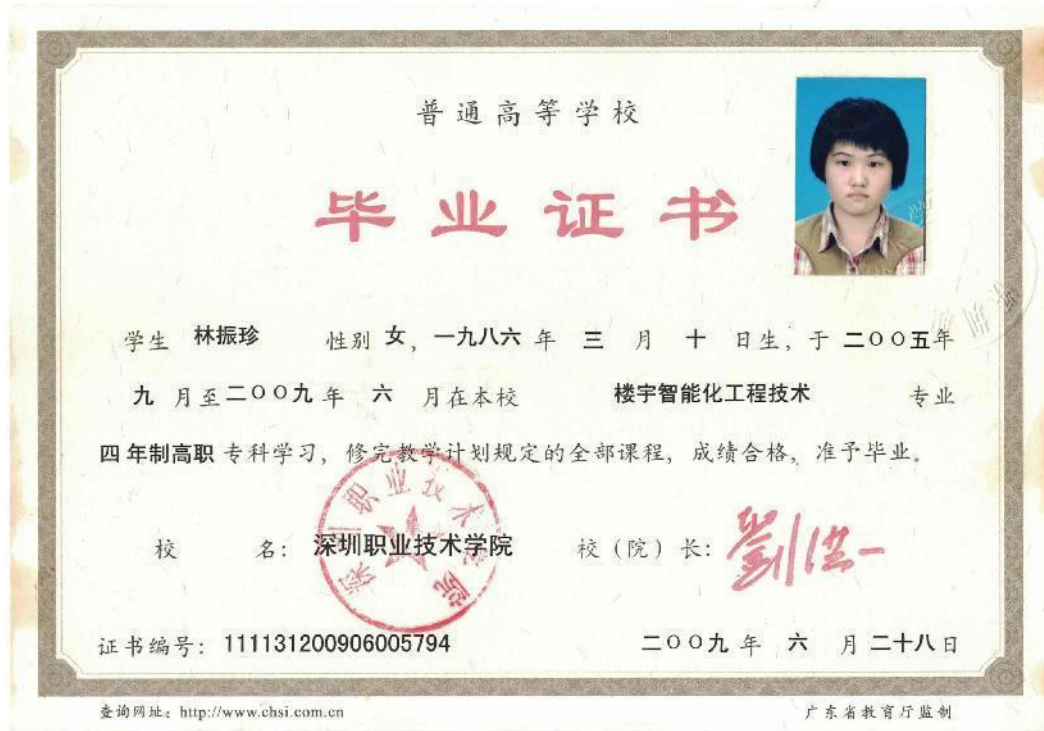 普通高等学校
毕业证书
学生 林振珍 性别 女，一九八六 年 三 月 十 日生，于 二〇〇五年
九 月至二〇〇九 年 六 月在本校 楼宇智能化工程技术 专业
四 年制高职 专科学习，修完教学计划规定的全部课程，成绩合格，准予毕业。
校 名：深圳职业技术学院 校（院）长：劉洪一
深圳职业技术学院
证书编号：111131200906005794 二〇〇九 年 六 月 二十八日
查询网址：http://www.chsi.com.cn 广东省教育厅监制